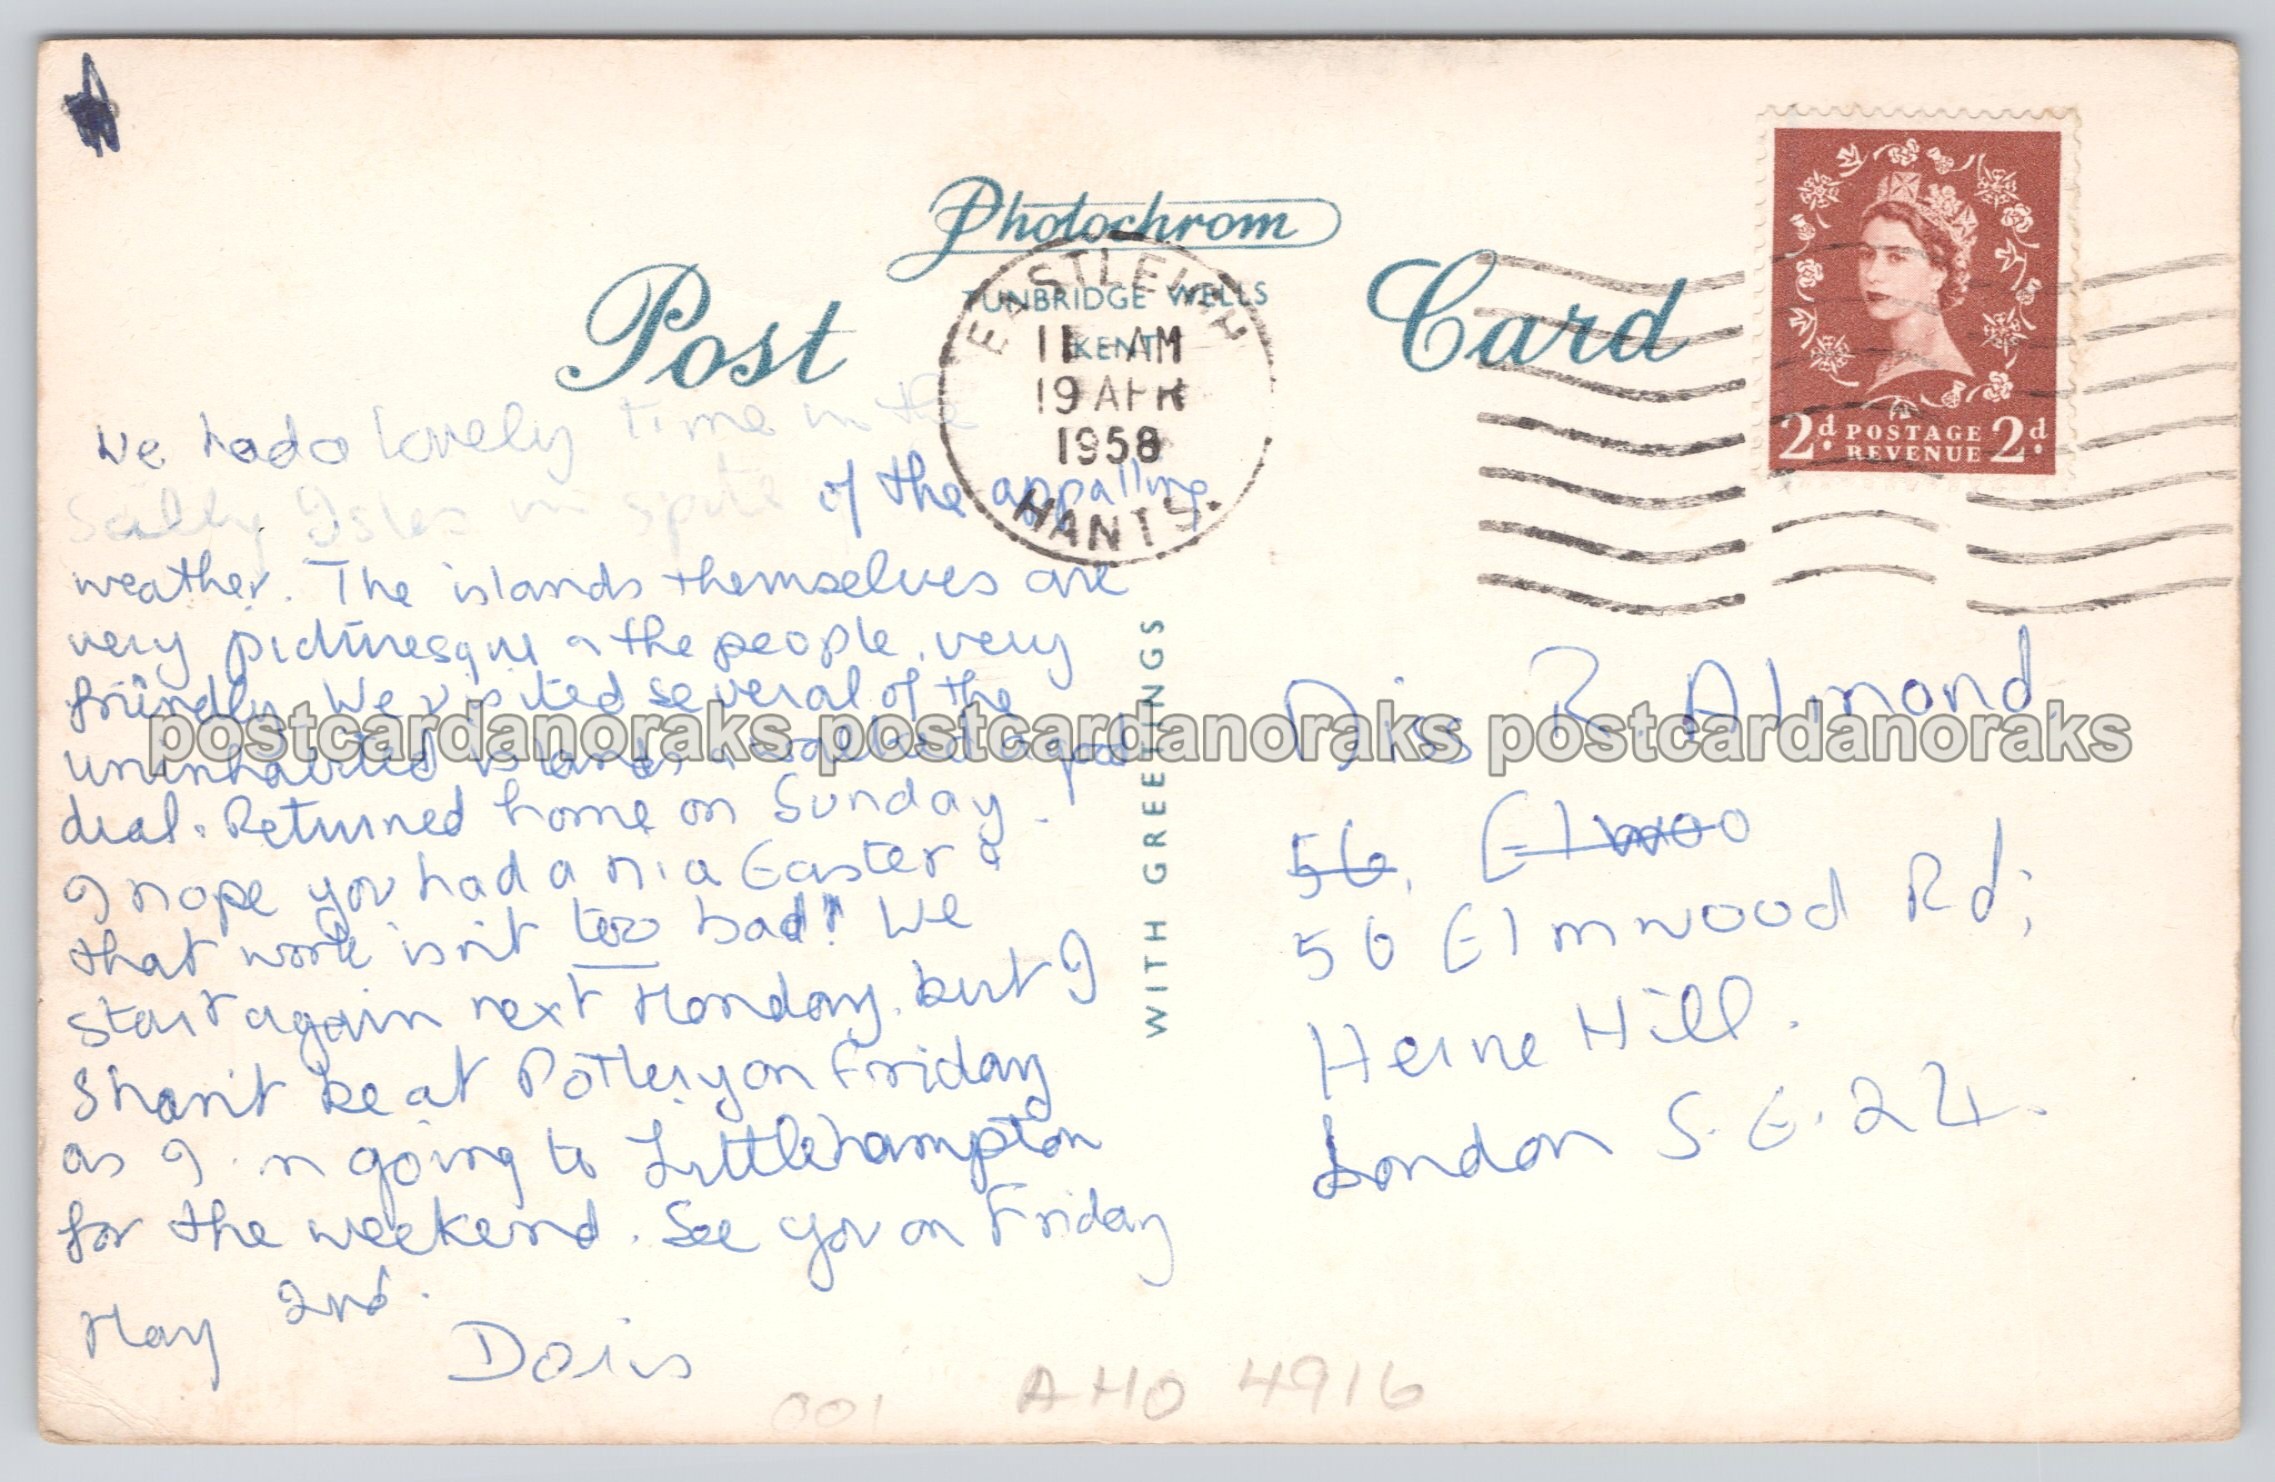 Photochrom
TUNBRIDGE WELLS
KENT
Post Card
EASTLEIGH
11 - AM
19 APR
1958
HANTS.
2d. POSTAGE 2d.
REVENUE
We had a lovely time in the
Scilly Isles in spite of the appalling
weather. The islands themselves are
very picturesque & the people, very
friendly. We visited several of the
uninhabited islands & walked a good
deal. Returned home on Sunday.
I hope you had a nice Easter &
that work isn't too bad! We
start again next Monday, but I
shan't be at Pottery on Friday
as I'm going to Littlehampton
for the weekend. See you on Friday
May 2nd.
Doris
WITH GREETINGS
Miss R. Almond,
56, Elmwoo
56 Elmwood Rd;
Herne Hill.
London S.E.24.
001 AHO 4916
postcardanoraks postcardanoraks postcardanoraks